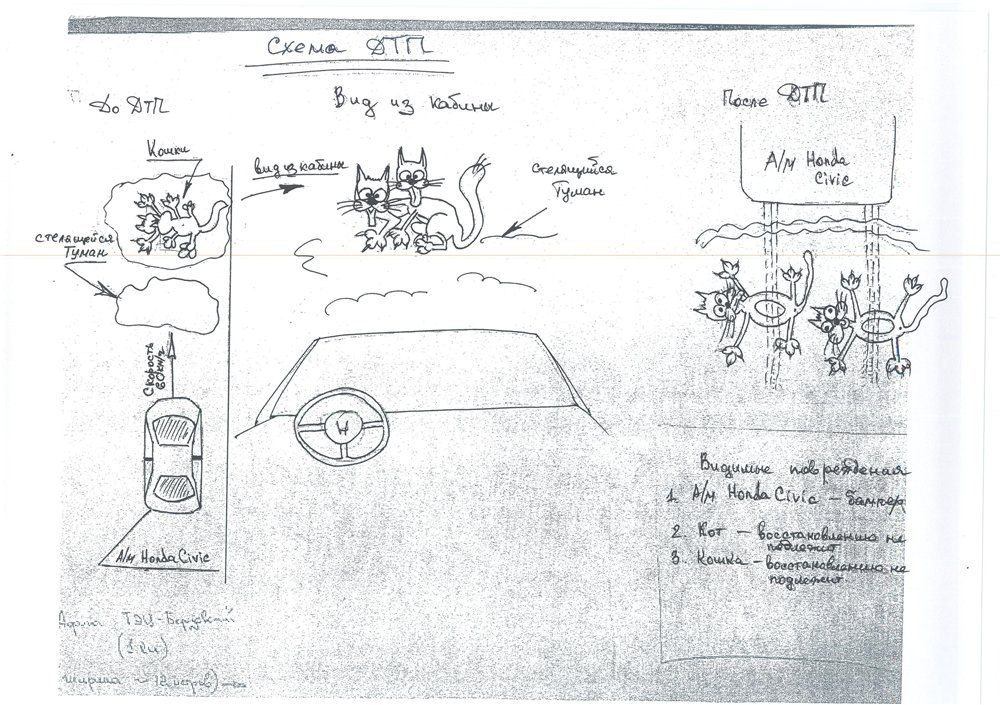 Схема ДТП
До ДТП
Вид из кабины
После ДТП
Кошки
вид из кабины
стелящийся
Туман
А/м Honda
Civic
стелящейся
Туман
Скорость
60км/ч
H
А/м Honda Civic
Видимые повреждения
1. А/м Honda Civic – бампер
2. Кот – восстановлению не
подлежит
3. Кошка – восстановлению не
подлежит
ТЭЦ-
(1км)
ширина ~ 12